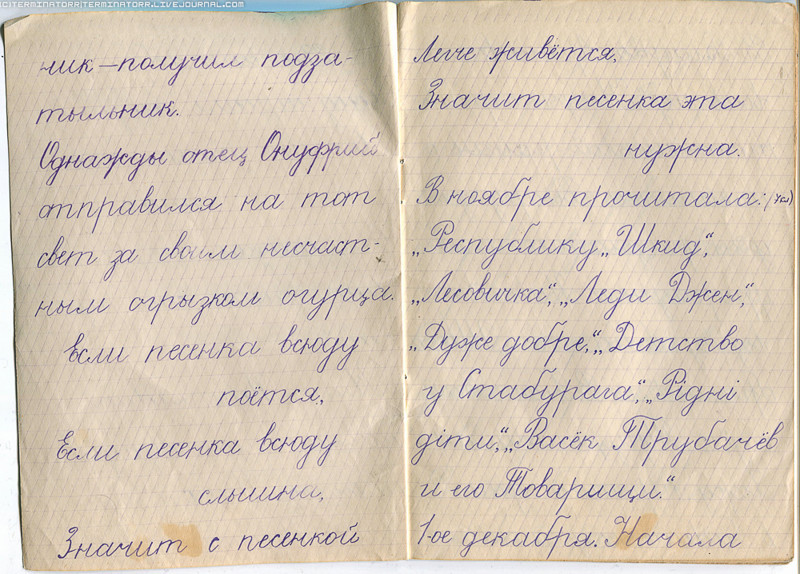 CITERMINATORRITERMINATORR.LIVEJOURNAL.COM
чик—получил подза-
тыльник.
Однажды отец Онуфрий
отправился на тот
свет за своим несчаст-
ным огрызком огурца.
Если песенка всюду
поётся,
Если песенка всюду
слышна,
Значит с песенкой
Легче живётся,
Значит песенка эта
нужна.
В ноябре прочитала:
„Республику „Шкид",
„Лесовичка", „Леди Джен",
„Дуже добре", „Детство
у Стабурага", „Рідні
діти", „Васёк Трубачёв
и его Товарищи."
1-ое декабря. Начала